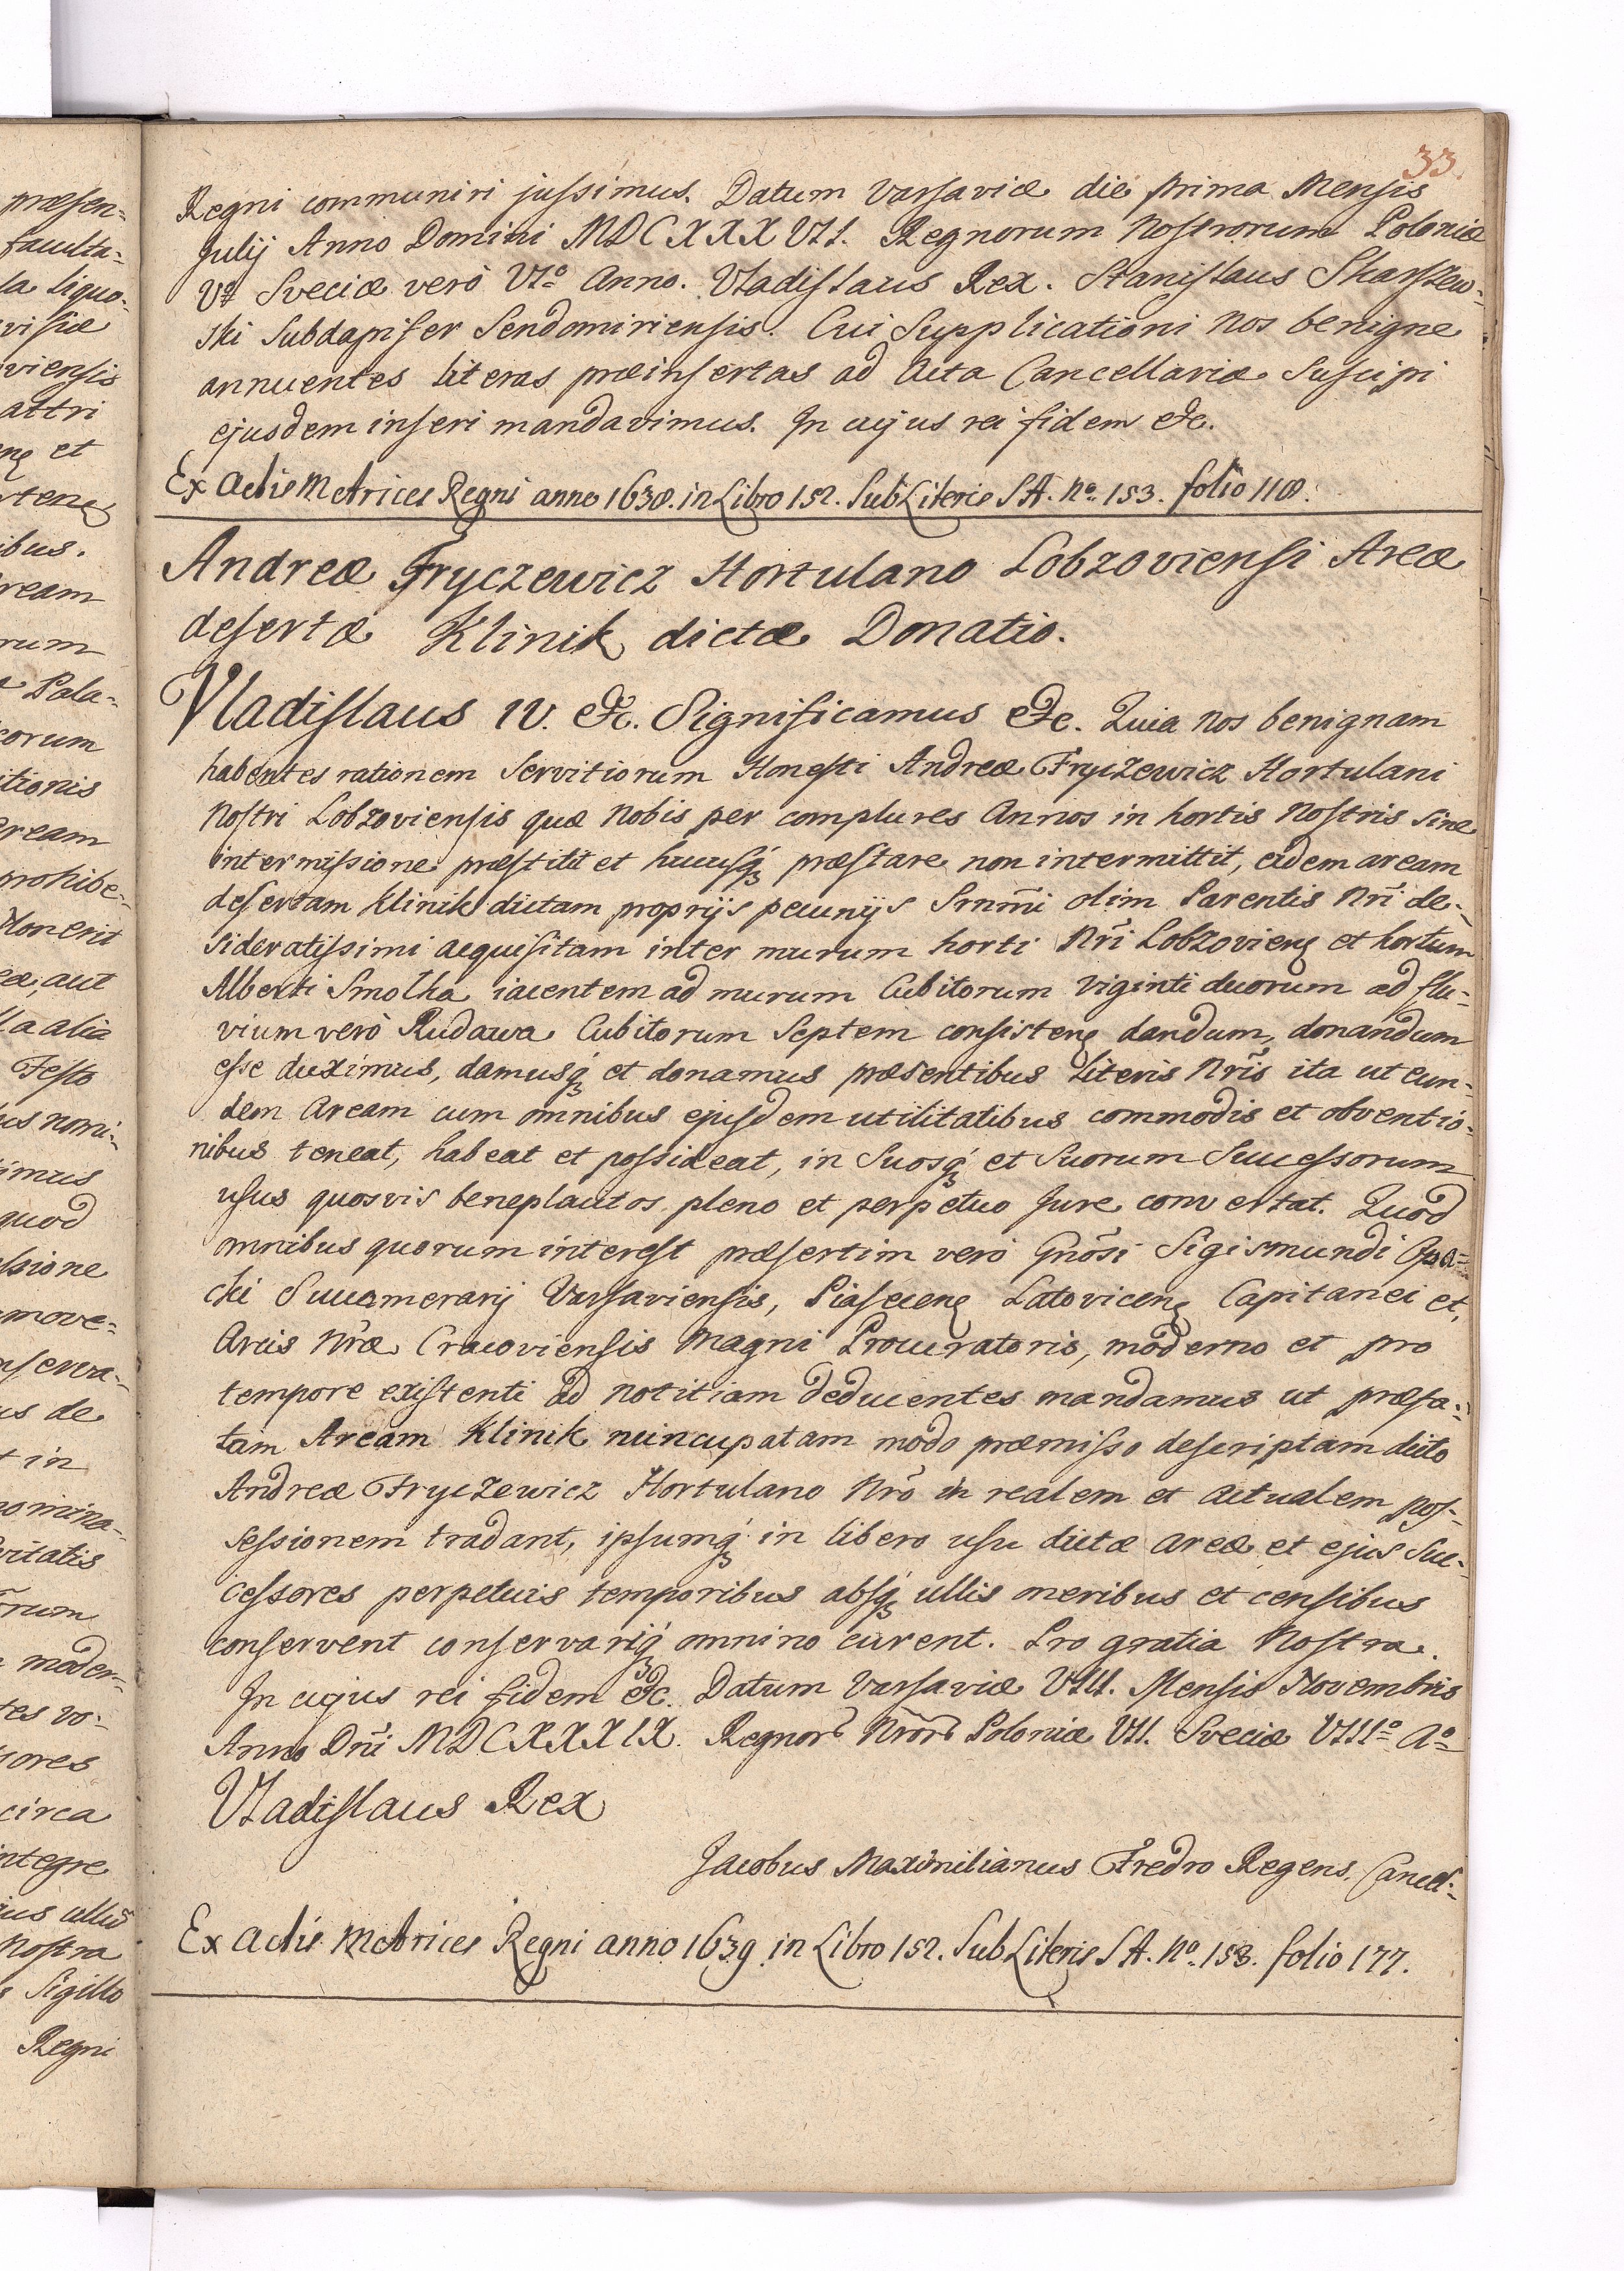 33.
Regni communiri jussimus. Datum Varsaviæ die prima Mensis
Julij Anno Domini MDCXXXVII. Regnorum Nostrorum Poloniæ
Vto Sveciæ verò VIo Anno. Vladislaus Rex. Stanislaus Skarszew-
ski Subdapifer Sendomiriensis. Cui Supplicationi Nos benigne
annuentes literas præinsertas ad Acta Cancellariæ Suscipi
ejusdem inseri mandavimus. In cujus rei fidem &c.
Ex Actis Metrices Regni anno 1638. in Libro 152. Sub Literis SA. No. 153. folio 118.
Andreæ Fryczewicz Hortulano Lobzoviensi Areæ
desertæ Klinik dictæ Donatio.
Vladislaus IV. &c. Significamus &c. Quia Nos benignam
habentes rationem Servitiorum Honesti Andreæ Fryczewicz Hortulani
Nostri Lobzoviensis quæ Nobis per complures Annos in hortis Nostris sine
intermissione præstitit et hucusq́ꝫ præstare non intermittit, eidem aream
desertam Klinik dictam proprijs pecunijs Srnm̄i olim Parentis Nr̄i de-
sideratissimi acquisitam inter murum horti Nr̄i Lobzovieng et hortum
Alberti Smolka iacentem ad murum Cubitorum Viginti duorum ad flu-
vium verò Rudawa Cubitorum Septem consisteng dandum, donandum
esse duximus, damusq́ꝫ et donamus præsentibus Literis Nr̄is ita ut eun-
dem Aream cum omnibus ejusdem utilitatibus commodis et obventio-
nibus teneat, habeat et possideat, in Suosq́ꝫ et Suorum Successorum
usus quosvis beneplacitos pleno et perpetuo Jure convertat. Quod
omnibus quorum interest præsertim verò Gnōsi Sigismundi Opa-
cki Succamerarij Varsaviensis, Piaseceng Latoviceng Capitanei et
Arcis Nr̄æ Cracoviensis Magni Procuratoris, moderno et pro
tempore existenti ad notitiam deducentes mandamus ut præfa-
tam Aream Klinik nuncupatam modo præmisso descriptam dicto
Andreæ Fryczewicz Hortulano Nrō in realem et actualem pos-
sessionem tradant, ipsumq́ꝫ in libero usu dictæ areæ et ejus Suc-
cessores perpetuis temporibus absq́ꝫ ullis oneribus et censibus
conservent conservariq́ꝫ omnino curent. Pro gratia Nostra.
In cujus rei fidem &c. Datum Varsaviæ VIII. Mensis Novembris
Anno Dn̄i MDCXXXIX. Regnorꝫ Nrōrꝫ Poloniæ VII. Sveciæ VIIIo Ao
Vladislaus Rex
Jacobus Maximilianus Fredro Regens. Cancell.
Ex Actis Metrices Regni anno 1639 in Libro 152. Sub Literis SA. No. 153. folio 177.